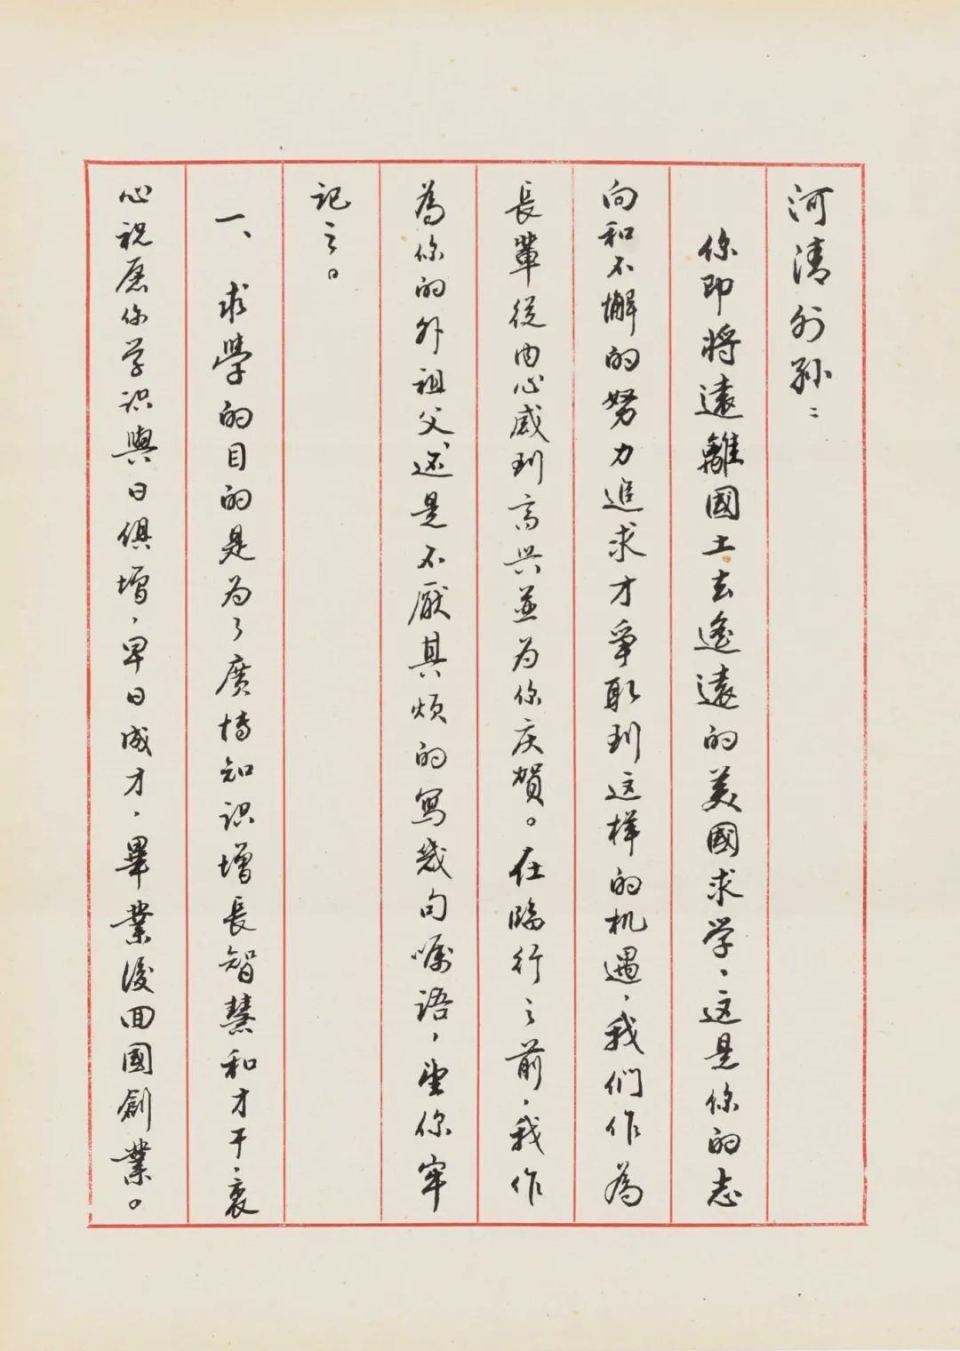 河清外孙：
你即将遠離國土去遙遠的美國求学，这是你的志
向和不懈的努力追求才爭取到这样的机遇，我们作為
長輩從内心感到高兴並为你庆賀。在臨行之前，我作
為你的外祖父、还是不厭其烦的寫幾句嘱语，望你牢
记之。
一、求學的目的是为了廣博知识增長智慧和才干，衷
心祝愿你学识與日俱增，早日成才，畢業後回國創業。